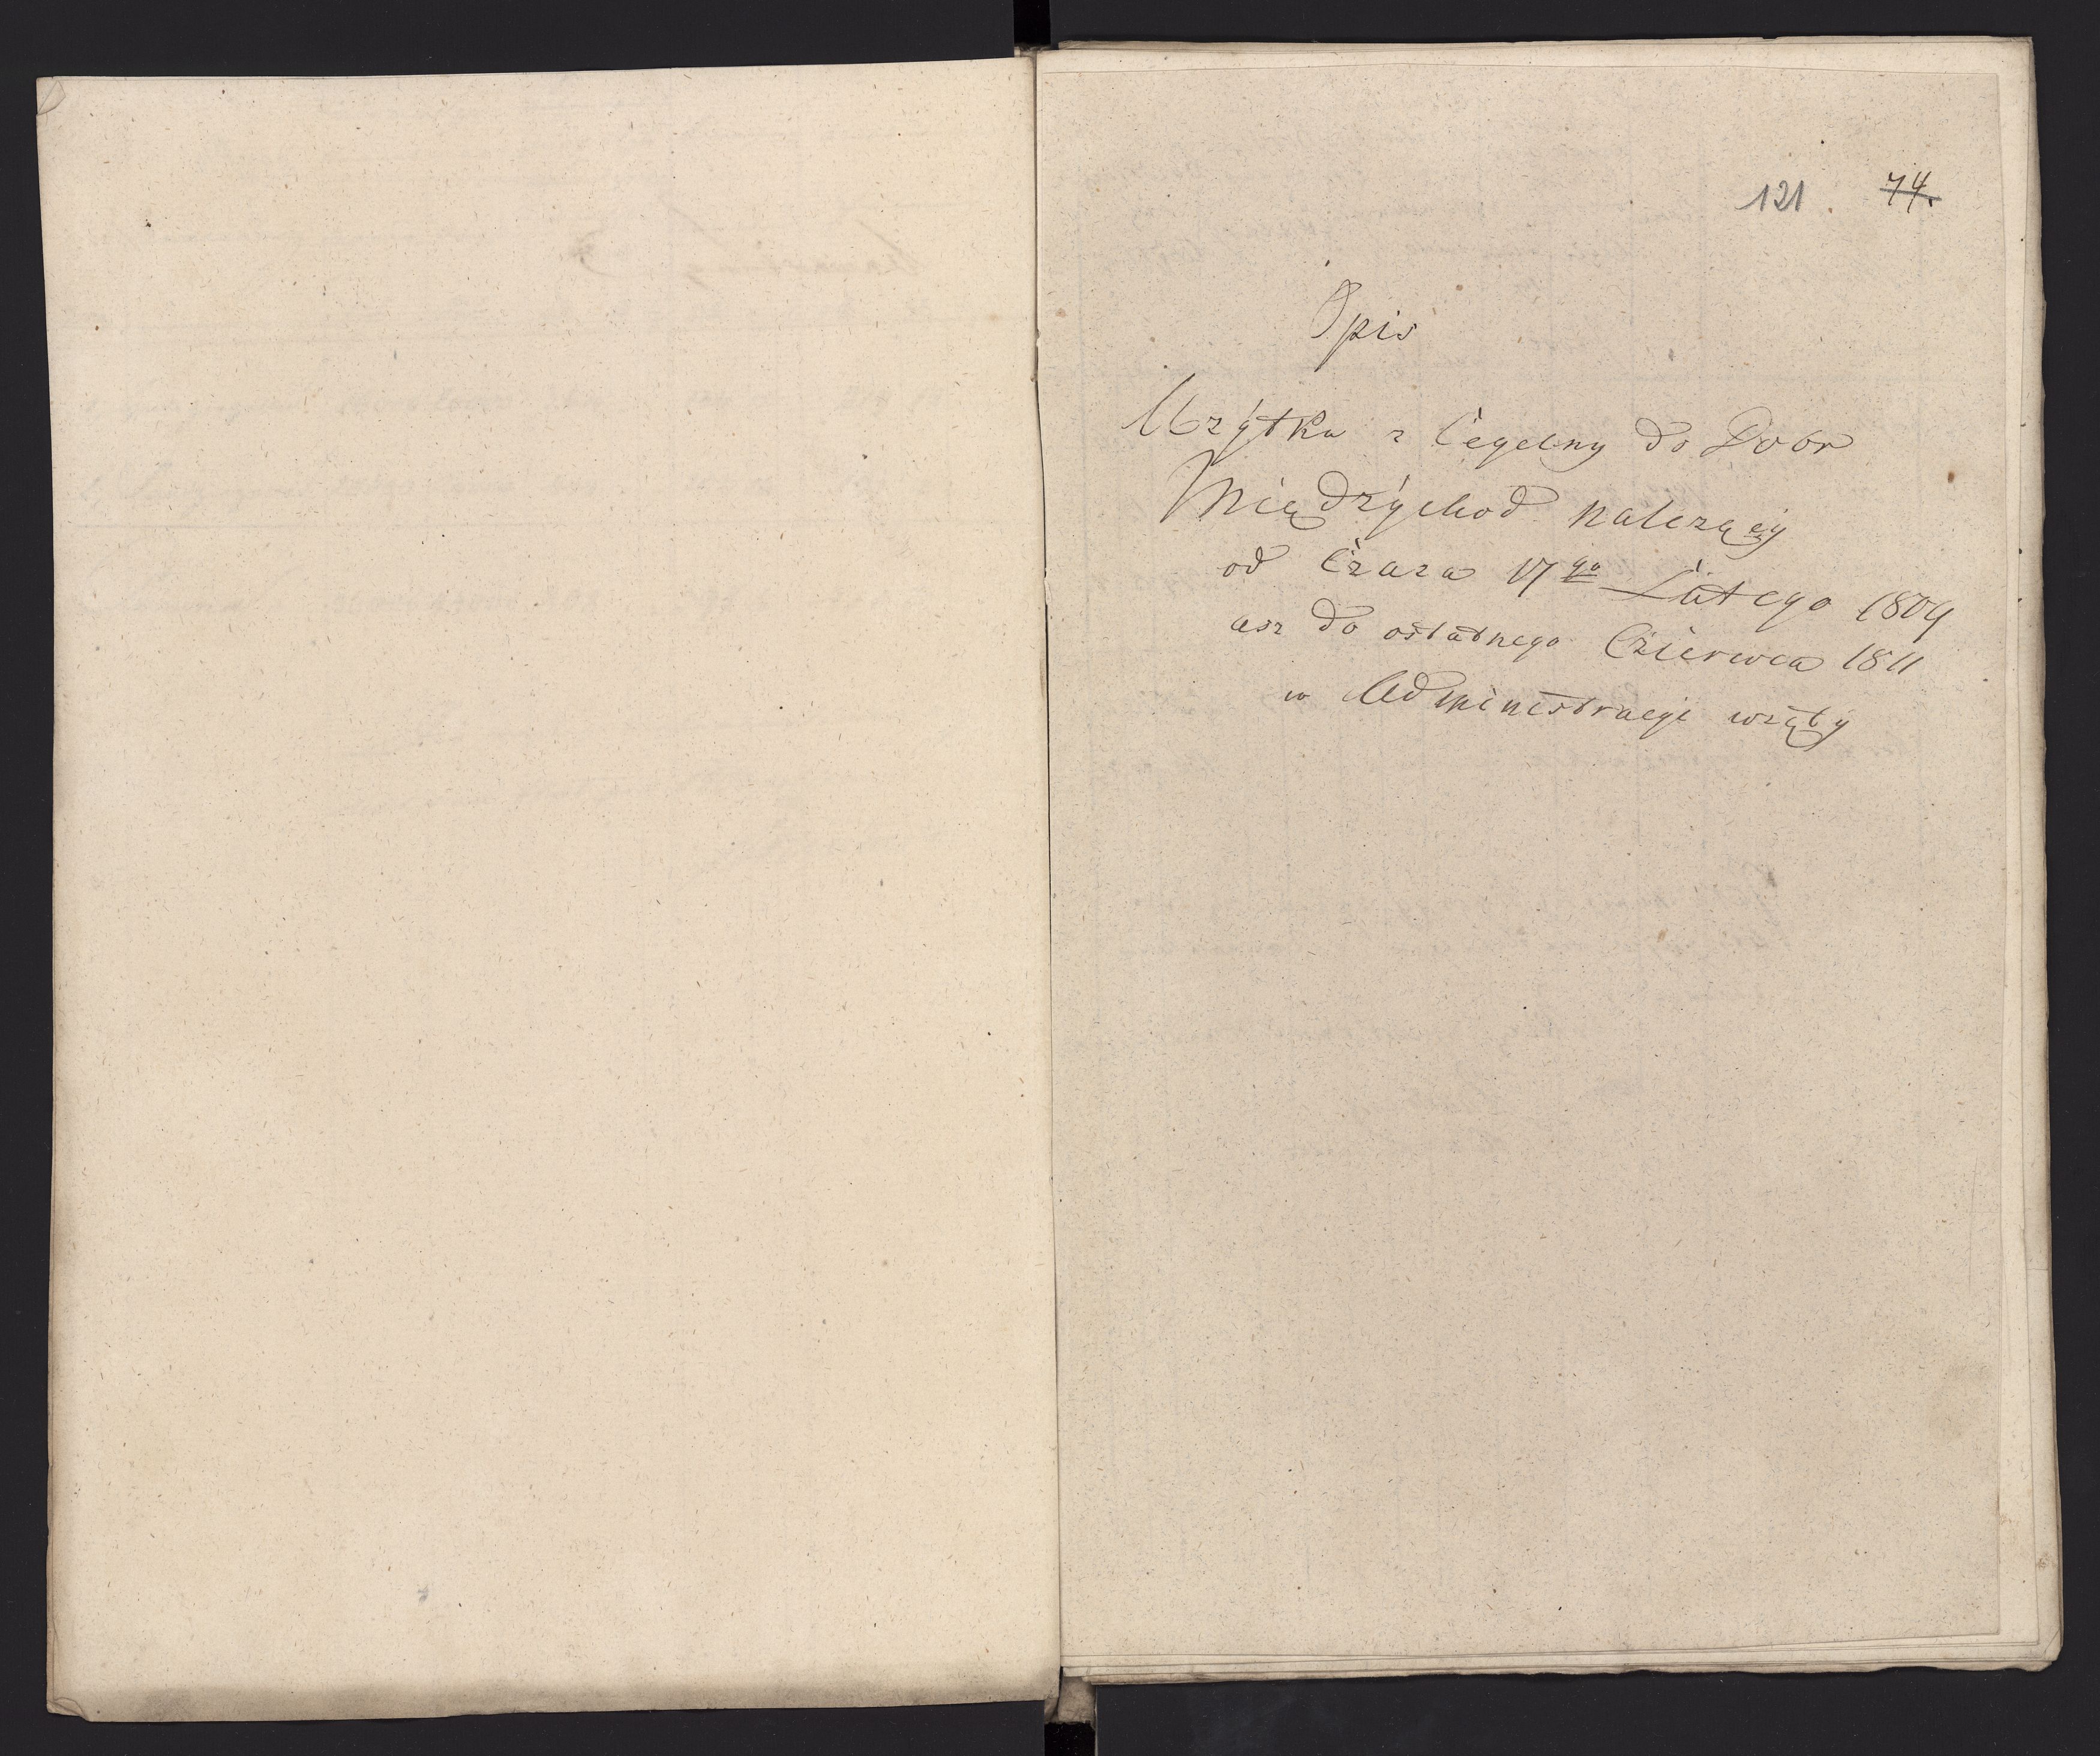 121 74.
Opis
Użytku z Cegelny do Dobr
Międzychod nalezący
od Czaza 17go Lutego 1809
asz do ostatnego Czierwca 1811
w Administracyi wzęty